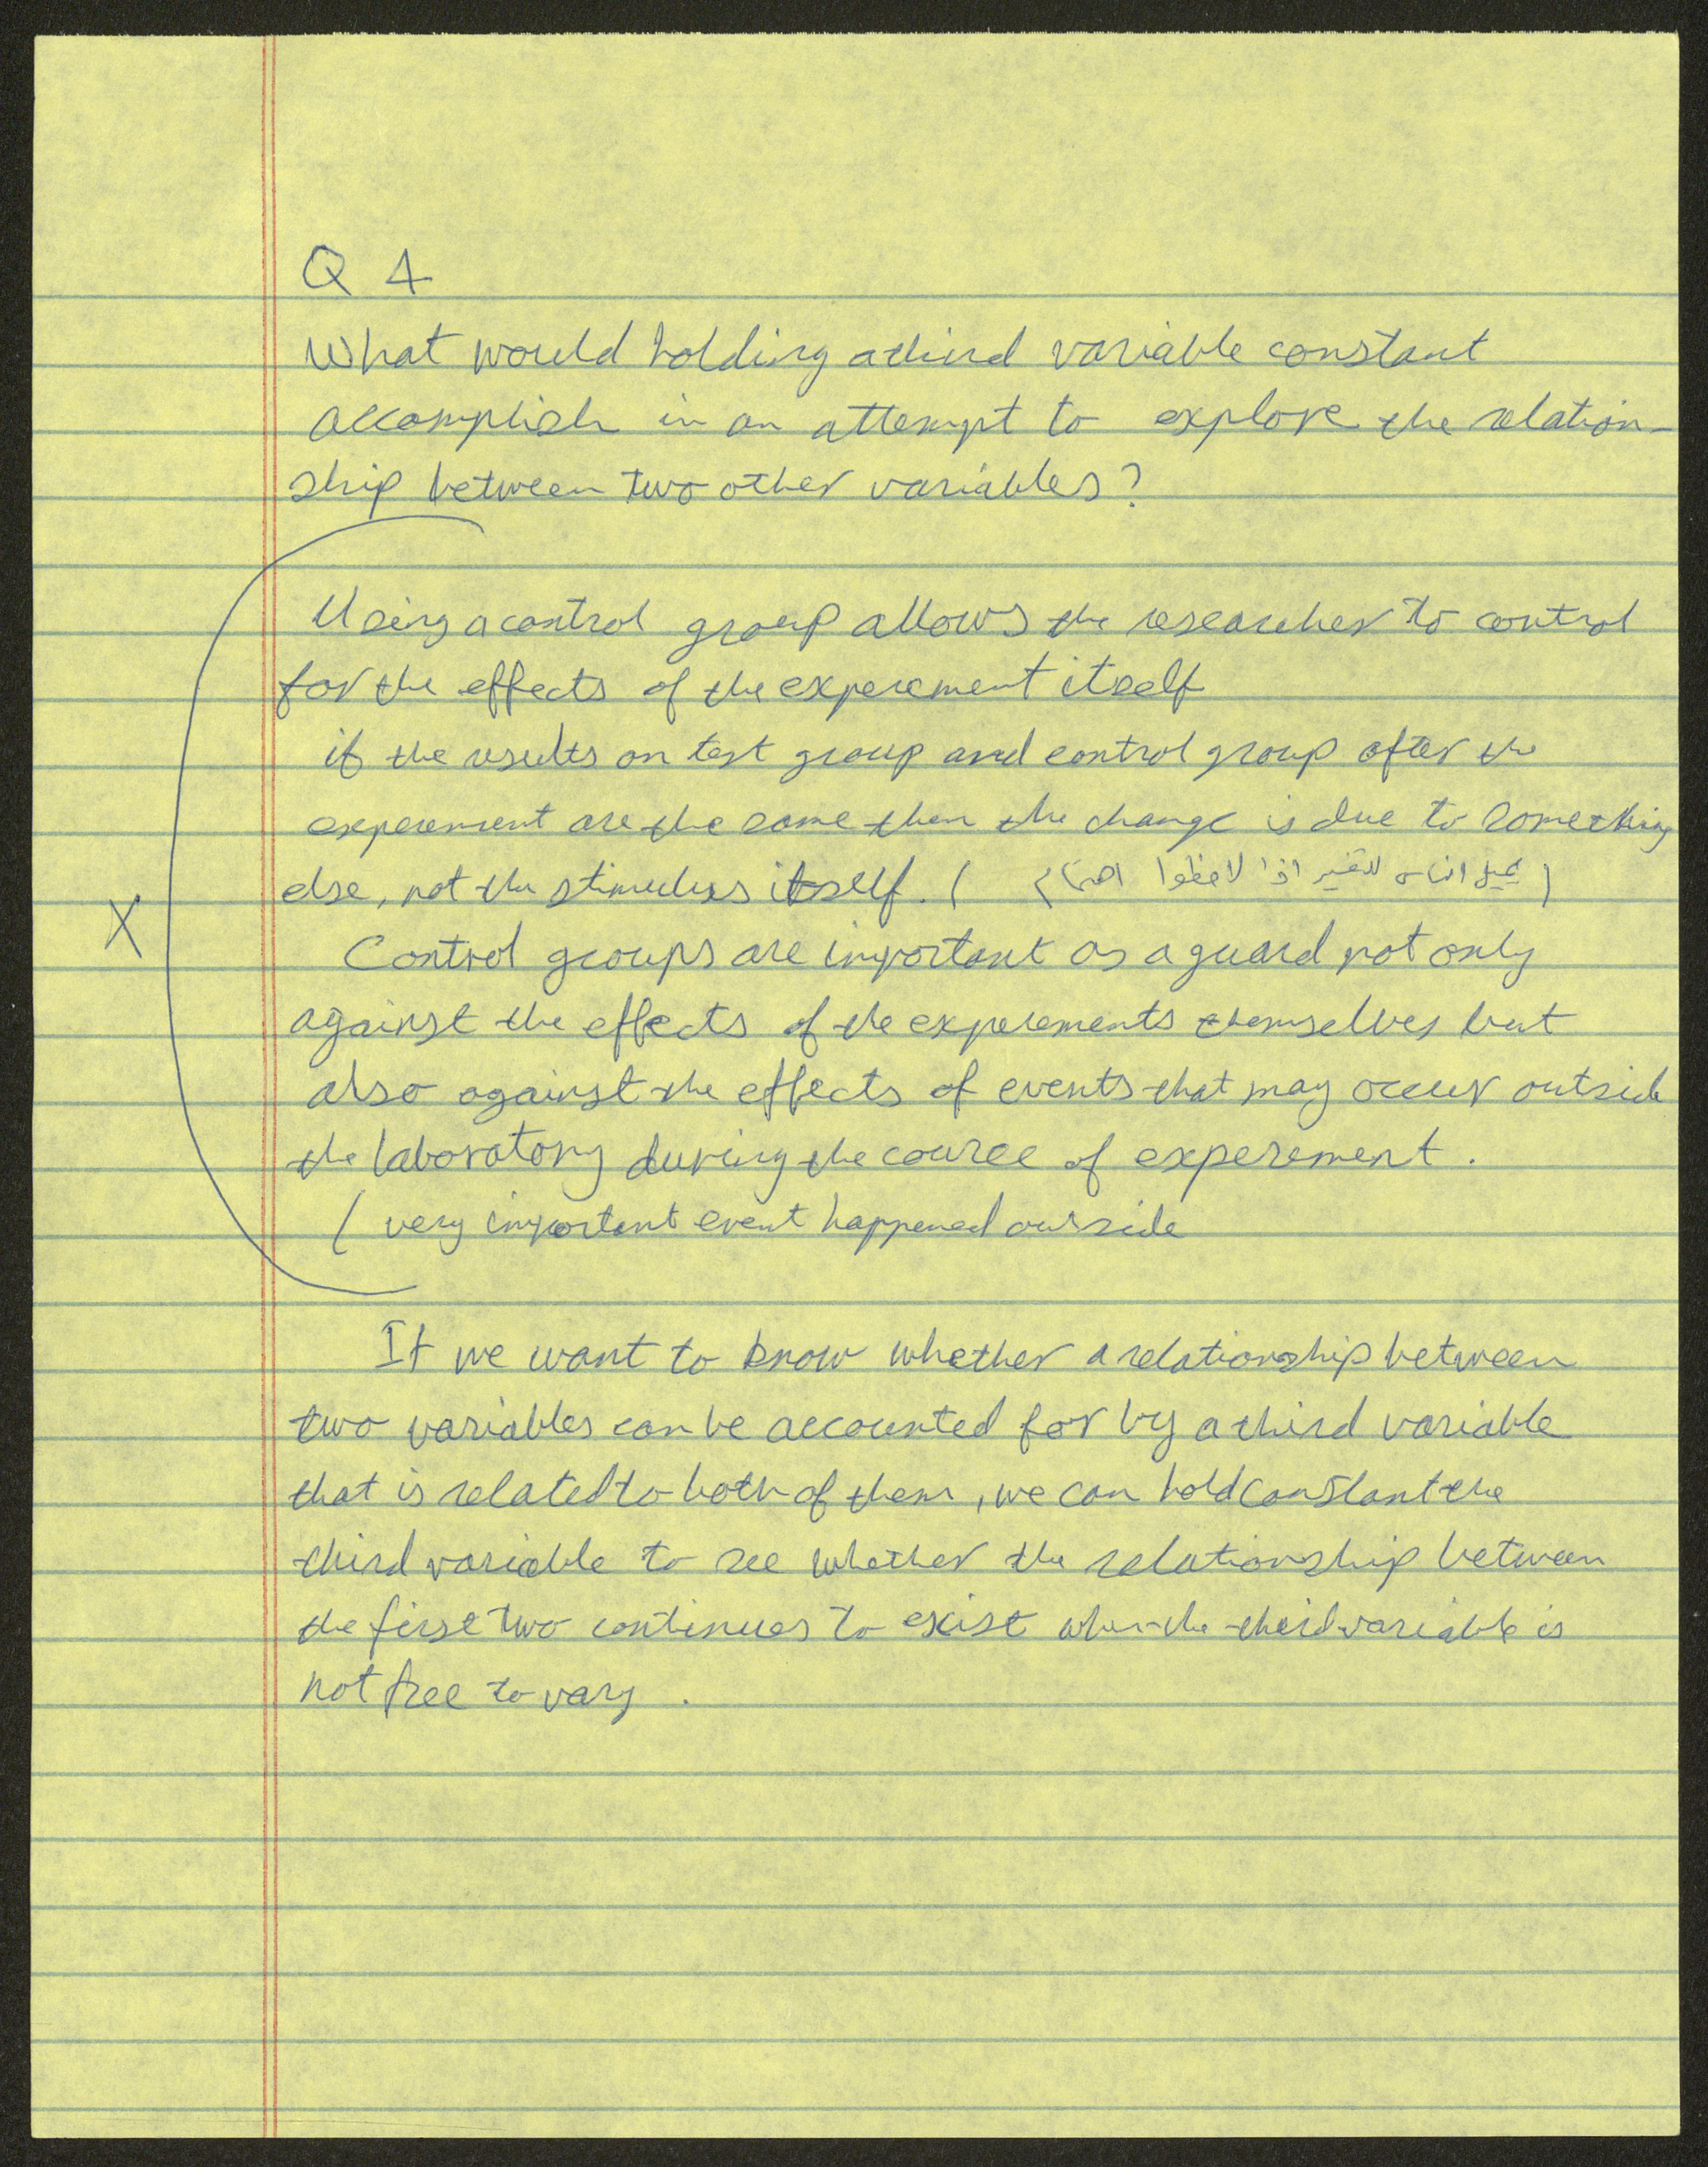 Q 4
What would holding a third variable constant
accomplish in an attempt to explore the relation-
ship between two other variables?
Using a control group allows the researcher to control
for the effects of the experement itself
if the results on test group and control group after the
experement are the same then the change is due to something
else, not the stimulus itself. ( يميل الناس للتغير اذا لاحظوا اهتمام )
X
Control groups are important as a guard not only
against the effects of the experements themselves but
also against the effects of events that may occur outside
the laboratory during the cource of experement.
( very important event happened outside
If we want to know whether a relationship between
two variables can be accounted for by a third variable
that is related to both of them, we can hold constant the
third variable to see whether the relationship between
the first two continues to exist when the third variable is
not free to vary.